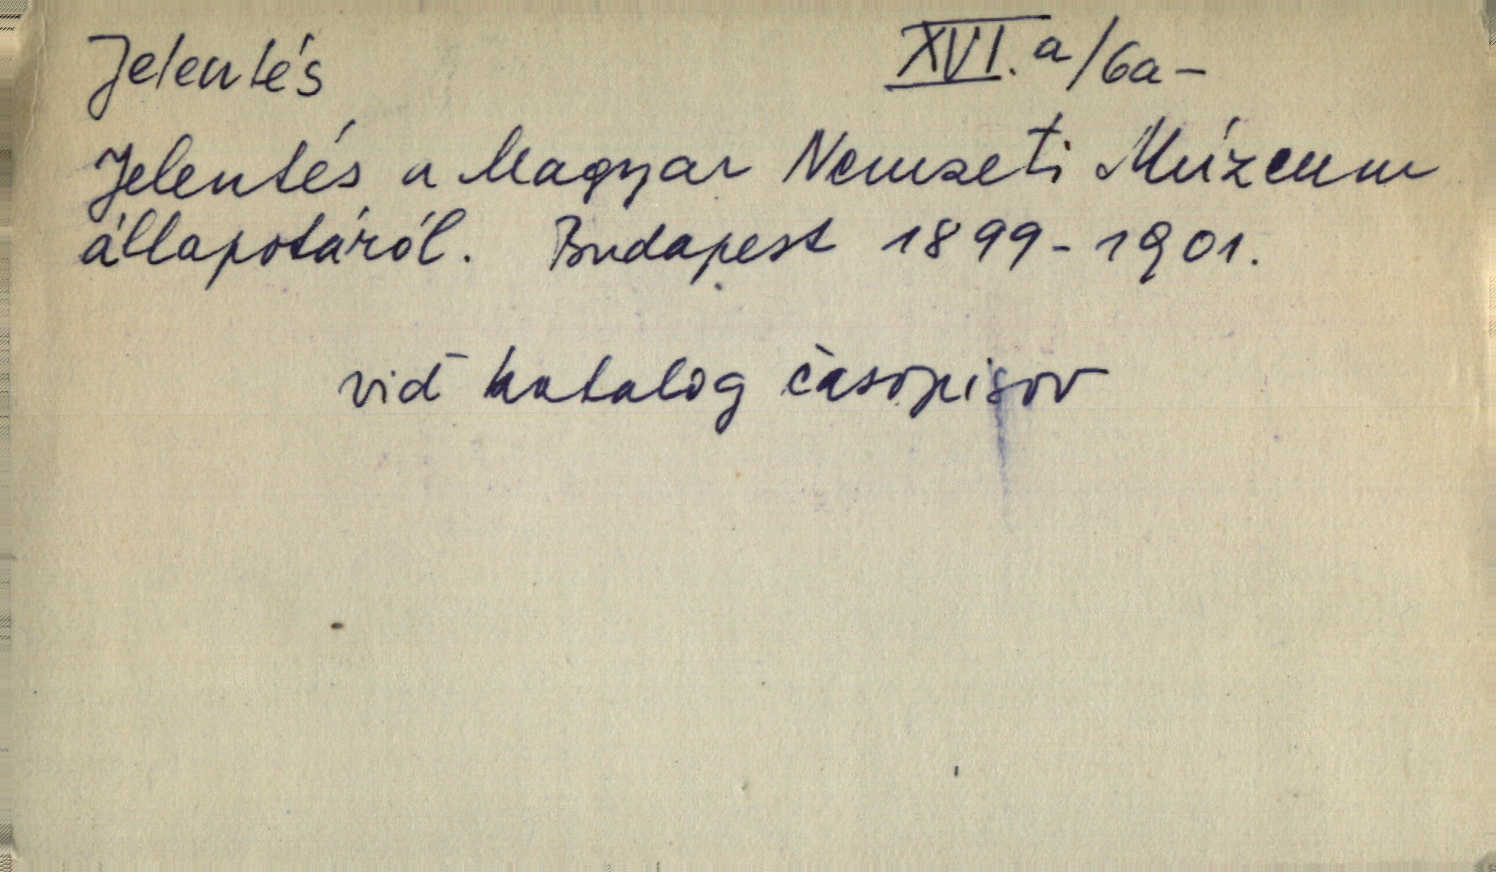 Jelentés XVI.a/6a-
Jelentés a Magyar Nemzeti Múzeum
állapotáról. Budapest 1899-1901.
viď katalog časopisov